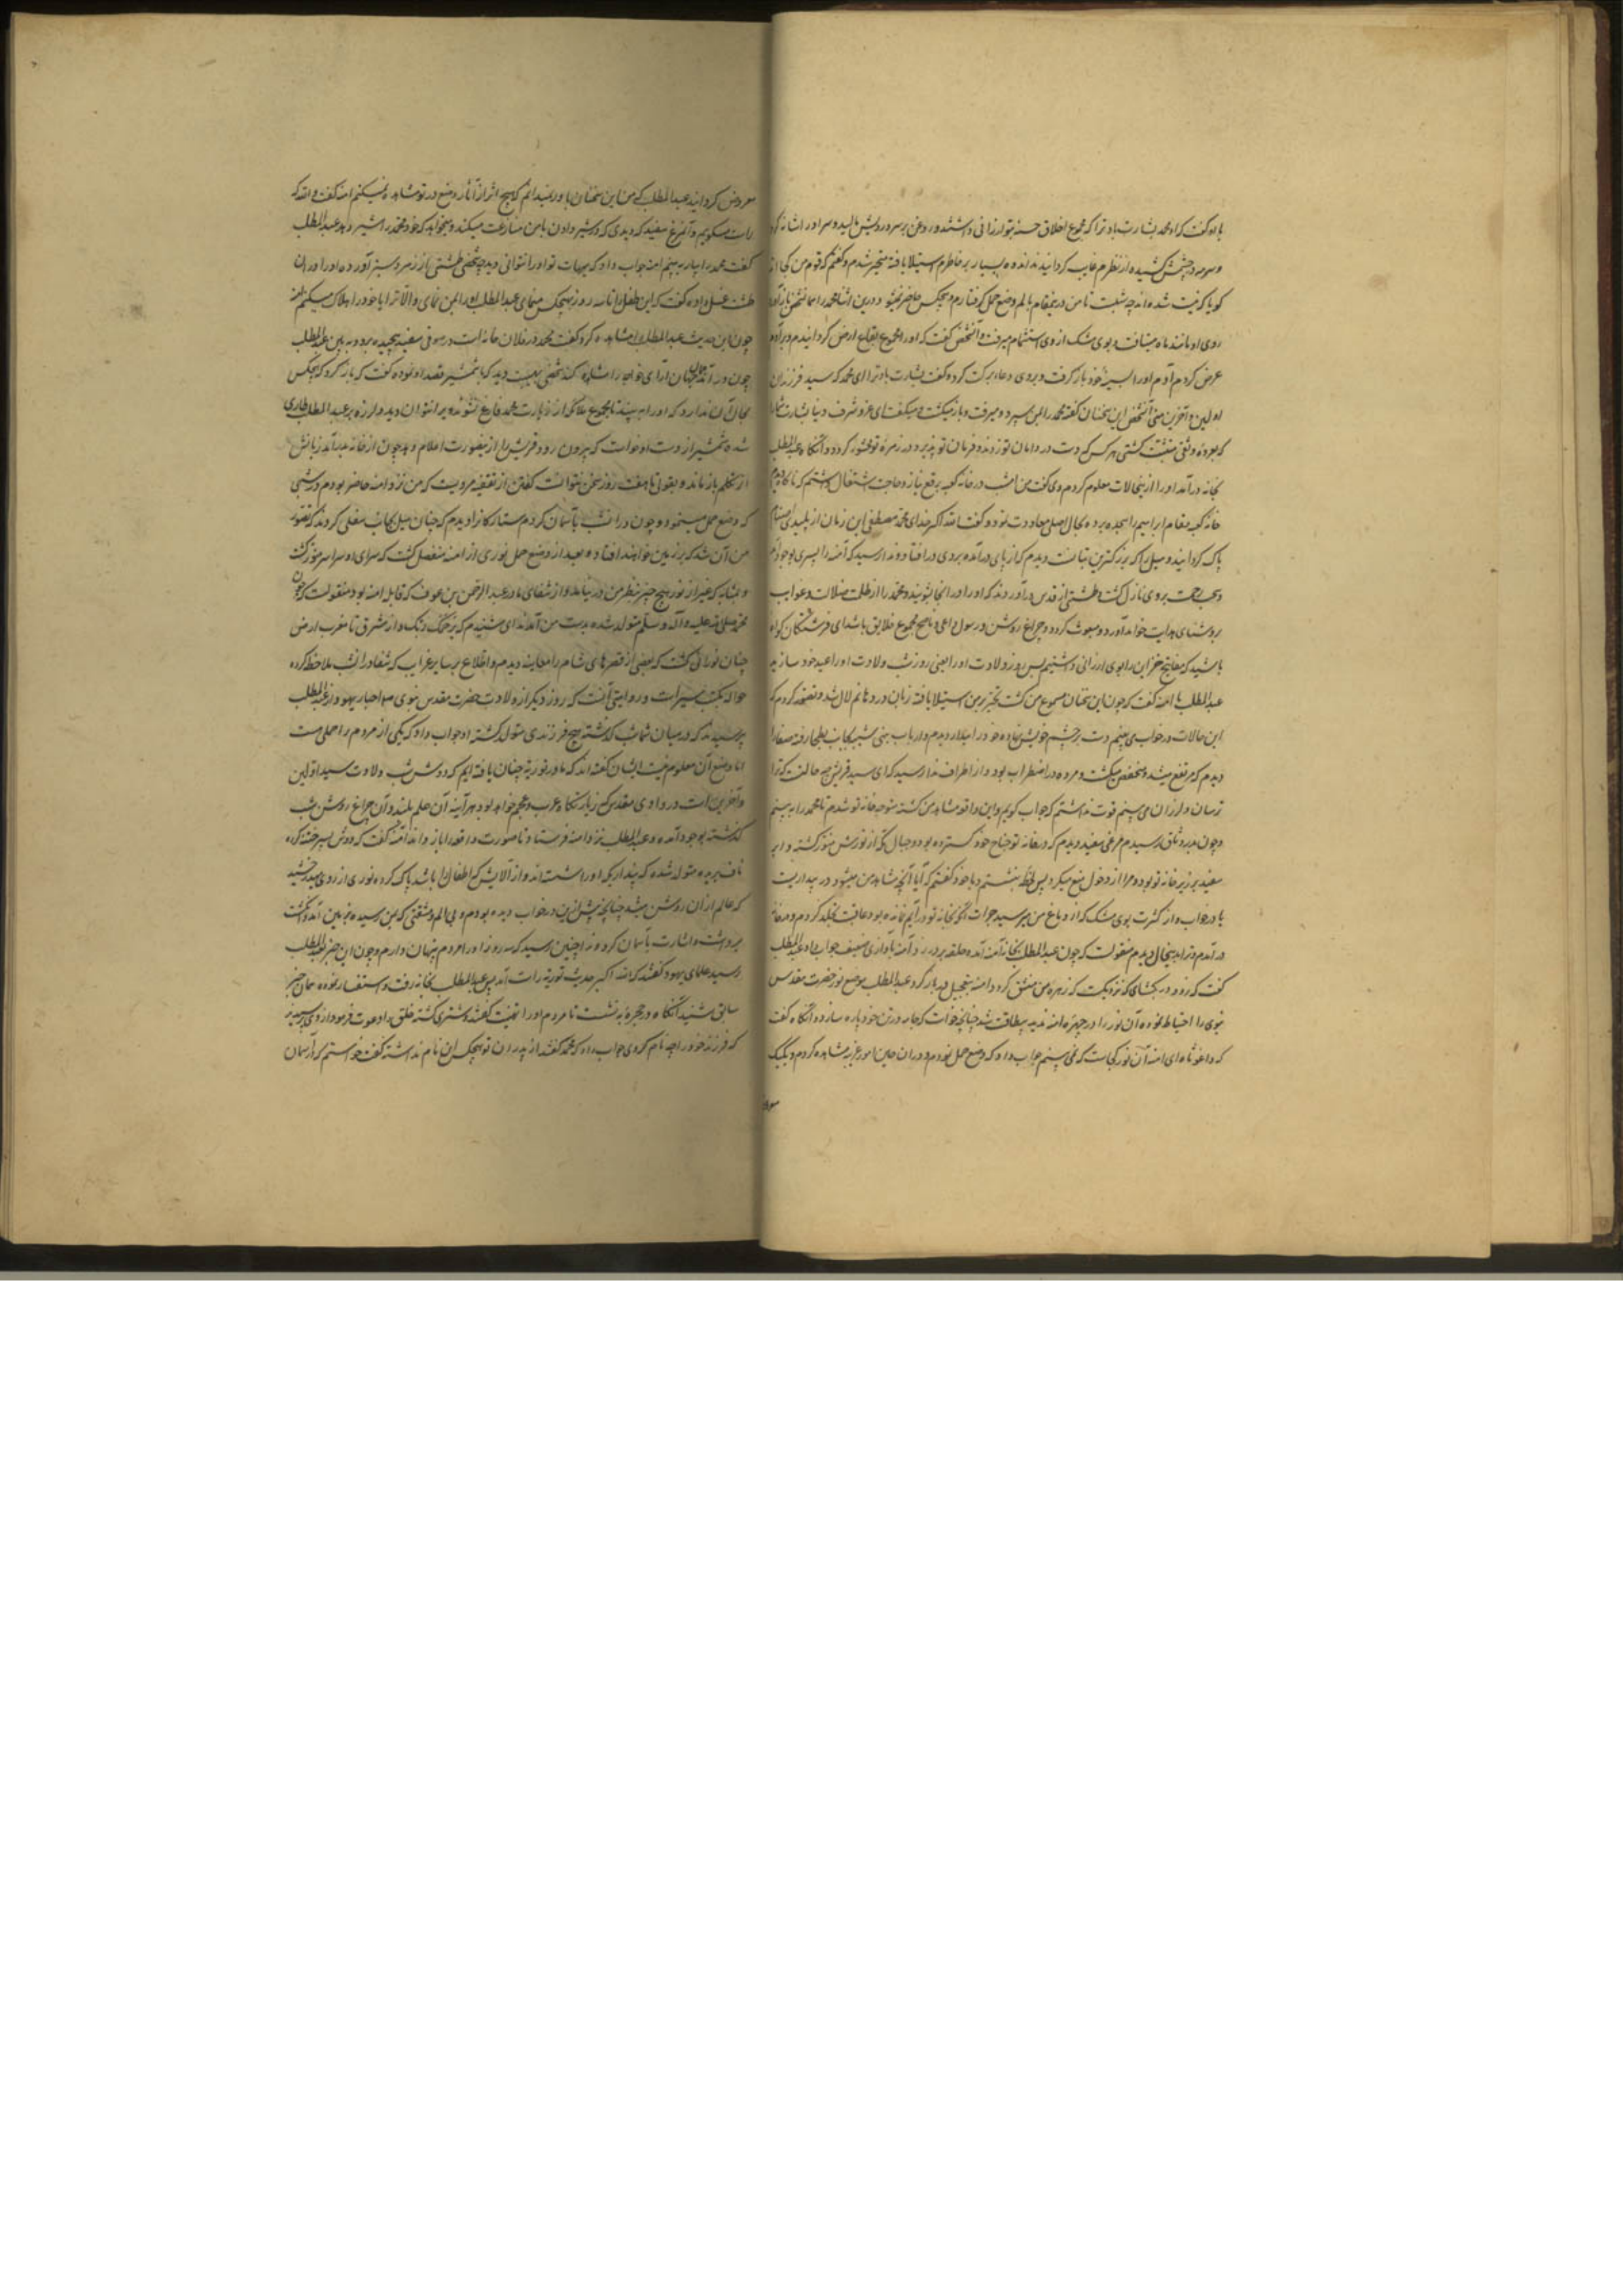 باو گفت که ای محمد بشارت باد ترا که مجموع اخلاق حسنه بتو ارزانی داشتند و روغن بر سر و رویش مالید و سر او را شانه کرد
و سرمه در چشمش کشیده از نظرم غایب گردانیدند اندوه بسیار بر خاطرم استیلا یافته متحیر شدم و گفتم که قوم من کجا اند
گویا گرفت شده اند چه شبست تا من درین مقام بالم وضع حمل گرفتارم و هیچکس حاضر نمیشود درین اثنا محمد را همان شخص باز آورد
روی او مانند ماه میتافت و بوی مشک از وی استشمام میرفت و آن شخص گفت که او را بمجموع بقاع ارض گردانیدم و بر آدم
عرض کردم آدم او را بسینه خود باز گرفت و بروی دعاء برکت کرده گفت بشارت باد ترا ای محمد که سید فرزندان
اولین و آخرین منی آن شخص این سخنان گفته محمد را بمن سپرد و میرفت و باز میگشت و میگفت ای عز و شرف دنیا بشارت باد ترا
که بعروه وثقی متشبث گشتی هر کس که دست در دامان تو زند و فرمان تو پذیرد در زمره تو محشور گردد و آنگاه عبدالمطلب
بخانه درآمد او را ازین حالات معلوم کردم وی گفت من امشب در خانه کعبه برفع نیاز و حاجت اشتغال داشتم که ناگاه دیدم
خانه کعبه بمقام ابراهیم را سجده برده بحال اصلی معاودت نمود و گفت الله اکبر خدای محمد مصطفی این زمان از پلیدی اصنام
پاک گردانید و هبل را که بزرگترین بتانست دیدم که از پای درآمده بروی در افتاد و ندا رسید که آمنه را پسری بوجود آمد
و سحاب رحمت بروی نازل گشت و طشتی از قدس درآوردند که او را در آنجا بشویند و محمد را از ظلمت ضلالت و غوایت
بروشنای هدایت خواند آورد و مبعوث گردد و چراغ روشن و رسول داعی و ناصح مجموع خلایق باشد ای فرشتگان گواه
باشید که مفاتیح خزاین را بوی ارزانی داشتیم پس روز ولادت او را یعنی روز شب ولادت او را عید خود سازید
عبدالمطلب با آمنه گفت که چون این سخنان مسموع من گشت تحیر بر من استیلا یافته زبان در دهانم لال شد و تصور کردم که
این حالات در خواب می بینم دست بر چشم خویش نهاده خود را بیدار دیدم و از باب بنی شیبه بجانب بطحا رفته صفا را
دیدم که مرتفع میشد و منخفض میگشت و مروه در اضطراب بود و از اطراف ندا رسید که ای سید قریش چه حالتست که ترا
ترسان و لرزان می بینم قوت نداشتم که جواب گویم و این واقعه مشاهده من گشته متوجه خانه تو شدم تا محمد را ببینم
و چون بدر وثاق رسیدم مرغی سفید دیدم که در خانه تو جناح خود گسترده بود و جبال مکه از نورش منور گشته و ابر
سفید بر زبر خانه تو بود و مرا از دخول منع میکرد پس لحظه بنشستم و با خود گفتم که آیا آنچه مشاهده من میشود در بیداریست
یا در خواب و از کثرت بوی مشک که از دماغ من میرسید جرأت آنکه بخانه تو درآیم نمانده بود عاقبت تجلد کردم و در خانه
درآمدم و ترا بدین حال دیدم منقولست که چون عبدالمطلب بخانه آمنه آمده حلقه بر در زد آمنه بآوازی ضعیف جواب داد عبدالمطلب
گفت که زود در بگشای که نزدیکست که زهره من منشق گردد آمنه بتعجیل در باز کرد عبدالمطلب موضع نور حضرت مقدس
نبوی را احتیاط نموده آن نور را در چهره آمنه ندید بیطاقت شد چنانچه خواست که جامه در تن خود پاره سازد و آنگاه گفت
که وا غوثاه ای آمنه آن نور کجاست که نمی بینم جواب داد که وضع حمل نمودم و در آن حین امور غریبه مشاهده کردم و یک یک
معروض گردانید عبدالمطلب گفت من این سخنان باور نمیدارم که هیچ اثر از آثار وضع در تو مشاهده نمیکنم آمنه گفت والله که
راست میگویم و آن مرغ سفید که دیدی که در شیر دادن با من منازعت میکند و میخواهد که خود محمد را شیر دهد عبدالمطلب
گفت محمد را بیار ببینم آمنه جواب داد که بیهات تو او را نتوانی دید چه شخصی طشتی از زمرد سبز آورده او را در آن
طشت غسل داده گفت که این طفل را تا سه روز بهیچکس منمای عبدالمطلب گفت او را بمن نمای و الا ترا یا خود را هلاک میکنم آمنه
چون این حدیث عبدالمطلب را مشاهده کرد گفت محمد در فلان خانه است در صوفی سفید پیچیده برو و ببین عبدالمطلب
چون درآمد تا جمال جهان آرای خواجه را مشاهده کند شخصی بهیبت دید که با شمشیر قصد او نموده گفت که باز گرد که هیچکس
مجال آن ندارد که او را ببیند تا مجموع ملائکه از زیارت محمد فارغ نشوند ویرا نتوان دید و لرزه بر عبدالمطلب طاری
شده شمشیر از دست او خواست که بیرون رود و قریش را ازین صورت اعلام دهد چون از خانه بدر آمد زبانش
از تکلم باز ماند و بقولی تا هفت روز سخن نتوانست گفتن از ثقفیه مرویست که من نزد آمنه حاضر بودم در شبی
که وضع حمل مینمود و چون در آن شب بآسمان نگاه کردم ستارگانرا دیدم که چنان میل بجانب سفلی کردند که تصور
من آن شد که بر زمین خواهند افتاد و بعد از وضع حمل نوری از آمنه منفصل گشت که سرای او سراسر منور گشت
و بمثابه که غیر از نور هیچ چیز بنظر من در نیامد و از شفای مادر عبدالرحمن بن عوف که قابله آمنه بود منقولست که چون
محمد صلی الله علیه و آله و سلم متولد شده بدست من آمد ندای شنیدم که یرحمک ربک و از مشرق تا مغرب ارض
چنان نورانی گشت که بعضی از قصرهای شام را معاینه دیدم و اطلاع بر سایر غرایب که شفا در آن شب ملاحظه کرده
حواله بکتب سیر است و روایتی آنست که روز دیگر از ولادت حضرت مقدس نبوی احبار یهود از عبدالمطلب
پرسیدند که در میان شما شب گذشته هیچ فرزندی متولد گشته او جواب داد که یکی از مردم را حملی هست
اما وضع آن معلوم نیست ایشان گفته اند که ما در توریة چنان یافته ایم که دوش شب ولادت سید اولین
و آخرین است در وادی مقدس که زیارتگاه عرب و عجم خواهد بود هر آینه آن علم بلند و آن چراغ روشن شب
گذشته بوجود آمده و عبدالمطلب نزد آمنه فرستاد تا صورت واقعه را باز داند آمنه گفت که دوش پسر ختنه کرده
ناف بریده متولد شده که پنداریکه او را شسته اند و از آلایش که اطفال را باشد پاک کرده نوری از روی میدرخشید
که عالم از آن روشن میشد چنانچه پیش ازین در خواب دیده بودم و بی الم و مشقتی که بمن رسید بزمین آمد و انگشت
برداشت و اشارت بآسمان کرد و ندا چنین رسید که سه روز او را از مردم پنهان دارم و چون این خبر بعبدالمطلب
رسید علمای یهود گفتند که الله اکبر حدیث توریة راست آمد پس عبدالمطلب بخانه رفت و استفسار نموده همان خبر
سابق شنید آنگاه در حجره بنشست تا مردم او را تهنیت گفتند و شتری کشته خلق را دعوت فرمود از وی پرسیدند
که فرزند خود را چه نام کردی جواب داد که محمد گفتند از پدران تو هیچکس این نام نداشته گفت خواستم که در آسمان